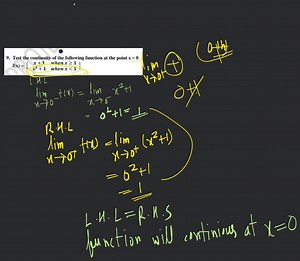 9. Test the continuity of the following function at the point x = 0
f(x) = { x + 1 when x ≥ 1
x² + 1 when x < 1
lim x→0⁺ +
0+h
0+h
L.H.L
lim x→0⁻ f(x) = lim x→0⁻ x²+1
= 0²+1 = 1
R.H.L
lim x→0⁺ f(x) = lim x→0⁺ (x²+1)
= 0²+1
= 1
L.H.L = R.H.S
function will continious at x=0